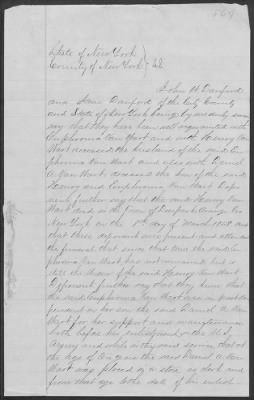 State of New York }
County of New York } SS
John H Danford
and Annie Danford of the City County
and State of New York being by me duly sworn
say that they have been well acquainted with
Euphemia Van Wart and with Henry Van
Wart deceased the husband of the said Eu-
phemia Van Wart and also with Daniel
A. Van Wart deceased the Son of the said
Henry and Euphemia Van Wart Depo-
nents further say that the said Henry Van
Wart died in the Town of
New York on the 1st day of March 1848 and
that these deponents were present and attended
the funeral that since that time the said Eu-
phemia Van Wart has not remarried but is
still the Widow of the said Henry Van Wart
Deponents further say that they know that
the said Euphemia Van Wart was in part de-
pendent on her son the said Daniel A. Van
Wart for her support and maintenance
both before his enlistment in the U.S.
Army and while in the said service that at
the age of the said Daniel A. Van
Wart was placed in a store as clerk and
from that age to the date of his enlist-